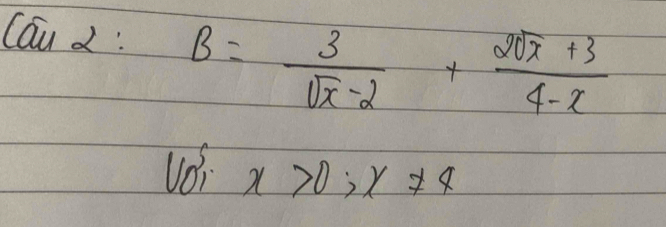 Câu 2 : B = 3/(√x - 2) + (2√x + 3)/(4 - x)
Với x > 0 ; x ≠ 4